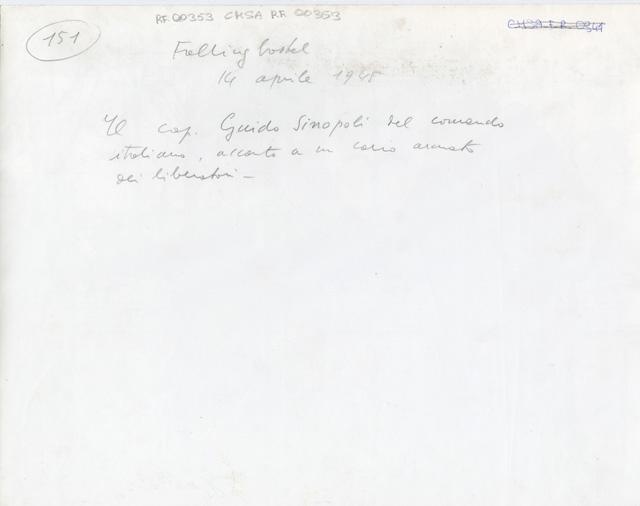 RF. 00353 CMSA R.F. 00353
151
Fallingbostel
14 aprile 1945
Il cap. Guido Sinopoli del comando
italiano, accanto a un carro armato
dei liberatori –